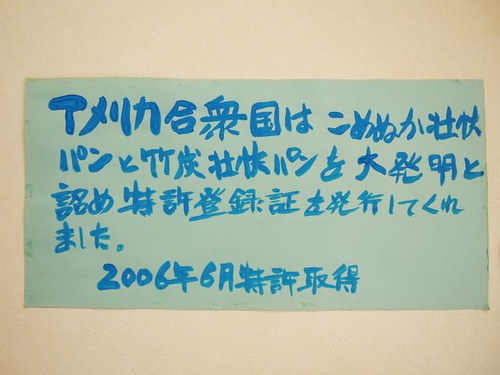 アメリカ合衆国はこめぬか壮快
パンと竹炭壮快パンを大発明と
認め特許登録証を発行してくれ
ました。
2006年6月特許取得